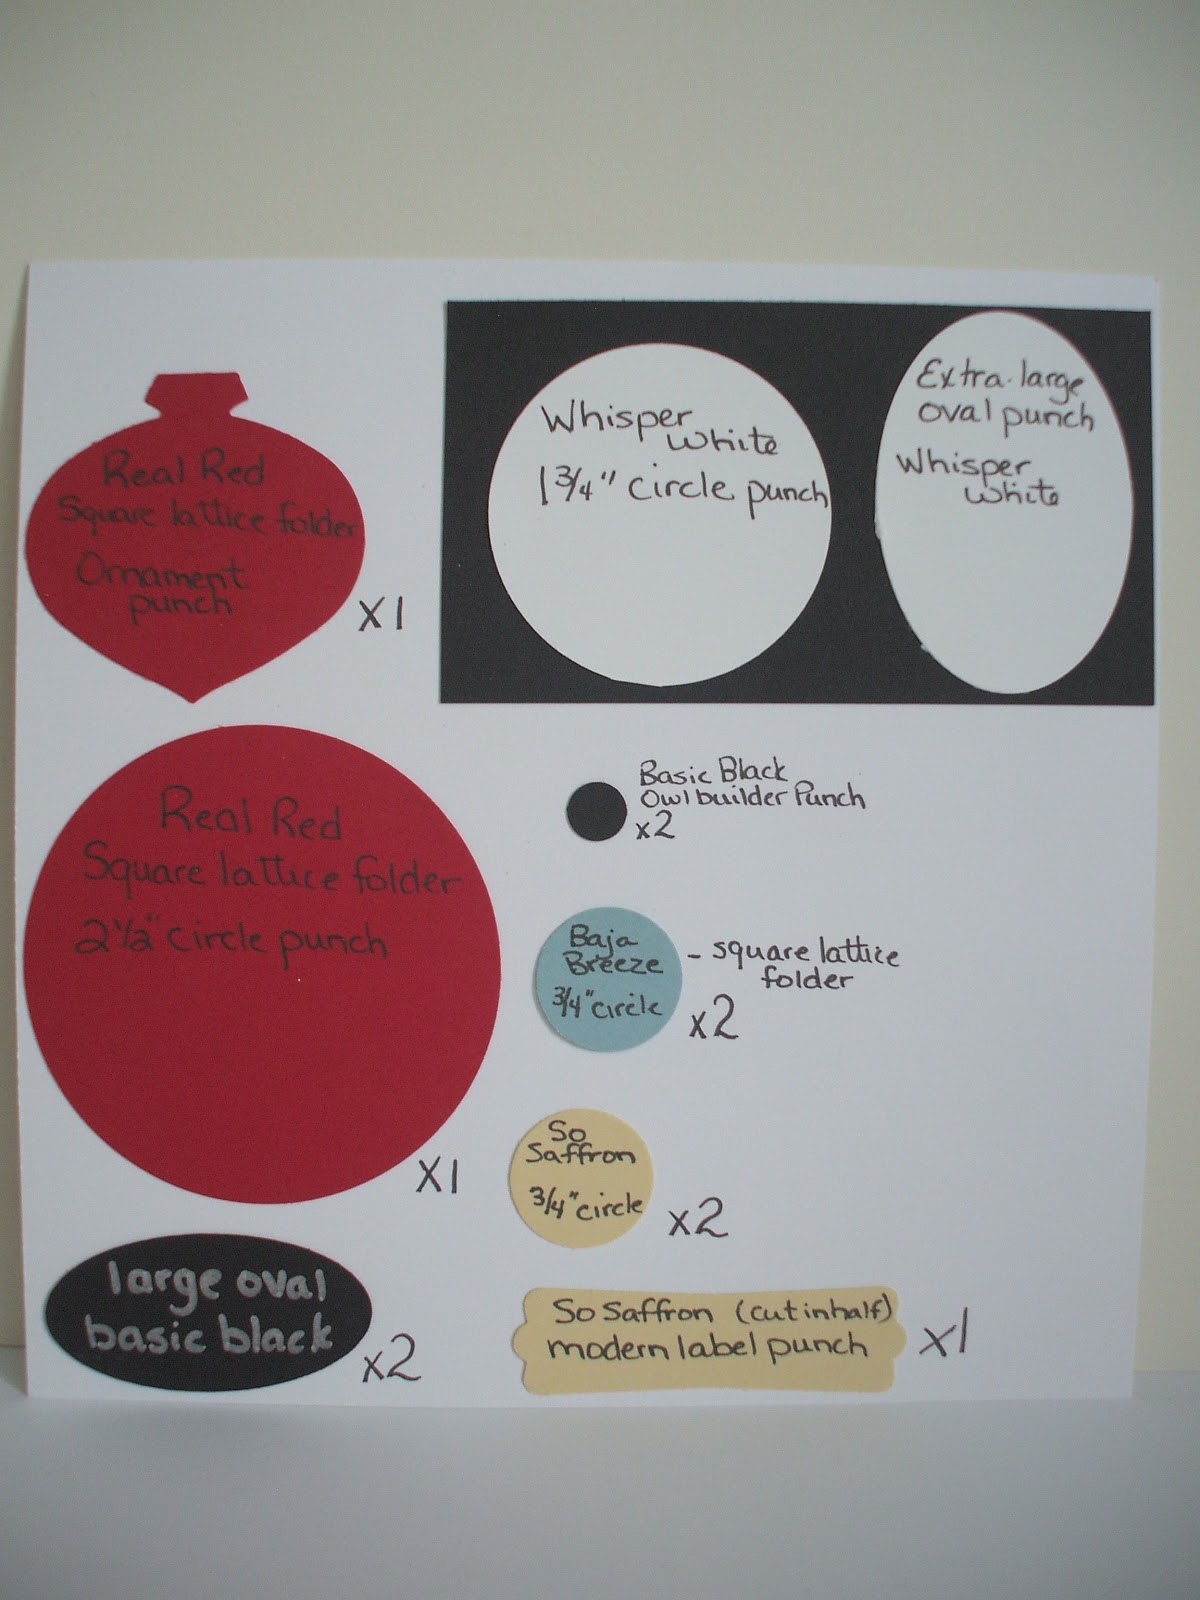 Real Red
Square lattice folder
Ornament
punch
x1
Whisper
white
1 3/4" circle punch
Extra-large
oval punch
Whisper
white
Real Red
Square lattice folder
2 1/2" circle punch
x1
Basic Black
Owl builder Punch
x2
Baja
Breeze
3/4" circle
- square lattice
folder
x2
So
Saffron
3/4" circle
x2
large oval
basic black
x2
So Saffron (cut in half)
modern label punch
x1